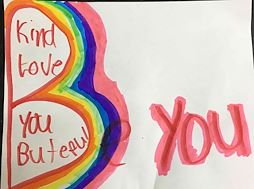 Kind
Love
You
Buteful
YOU